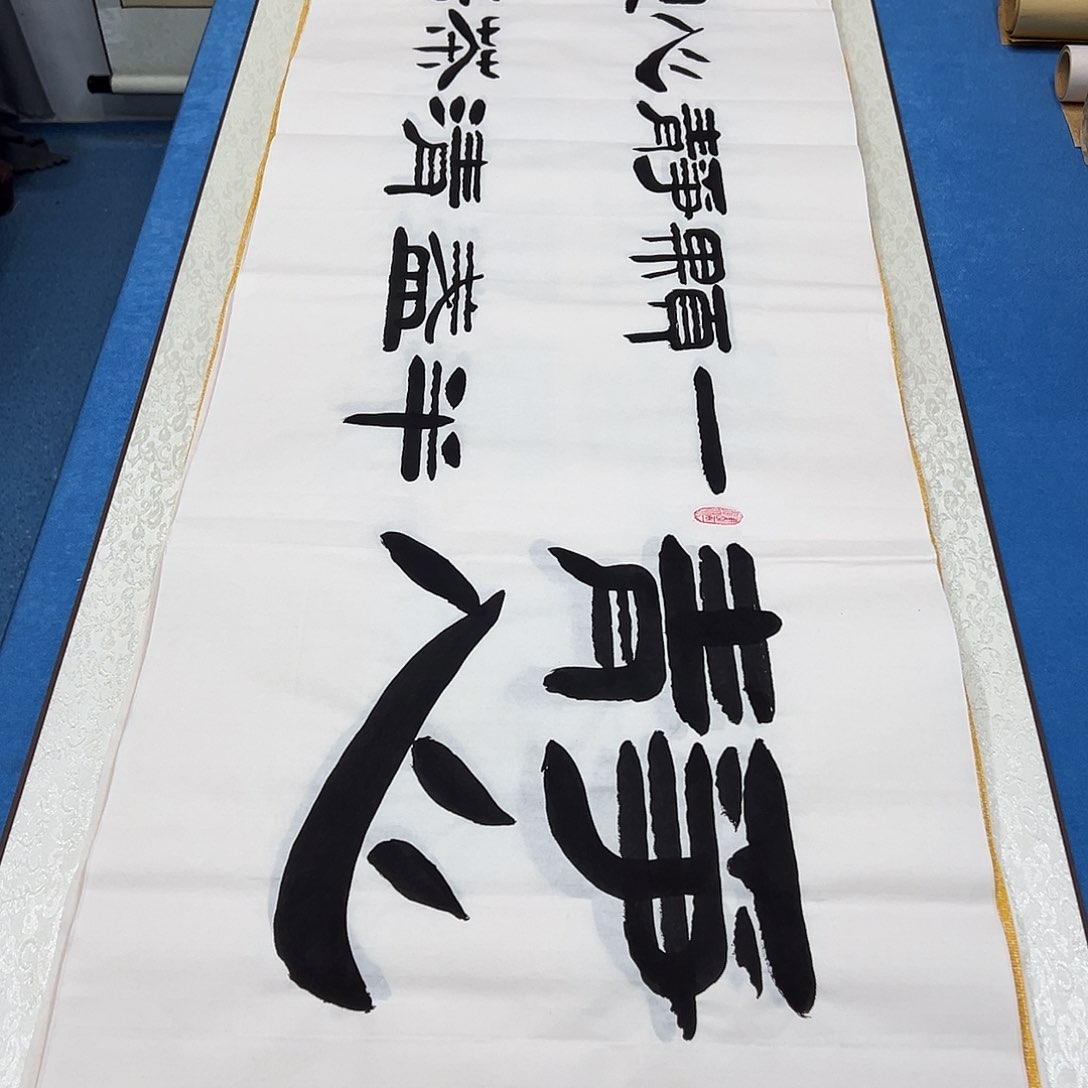 靜心
一顆靜心
半盏清茶